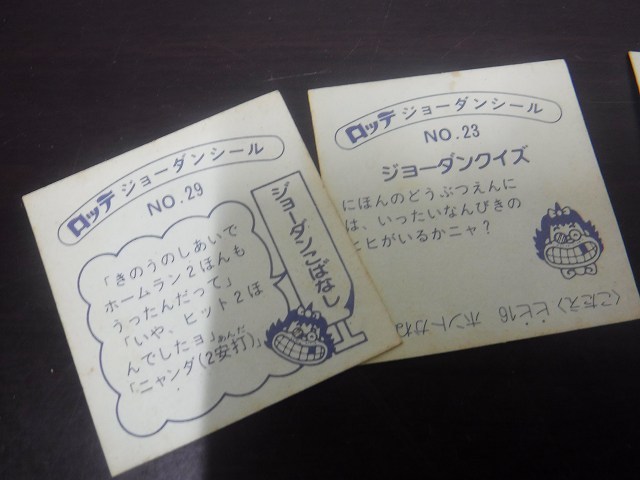 ロッテ ジョーダンシール
NO.29
ジョーダンこばなし
「きのうのしあいで
ホームラン2ほんも
うったんだって」
「いや、ヒット2ほ
んでしたョ」
「ニャンダ(2安打)」
あんだ
ロッテ ジョーダンシール
NO.23
ジョーダンクイズ
にほんのどうぶつえんに
は、いったいなんびきの
ヒヒがいるかニャ?
〈こたえ〉ヒヒ16 ホントかね